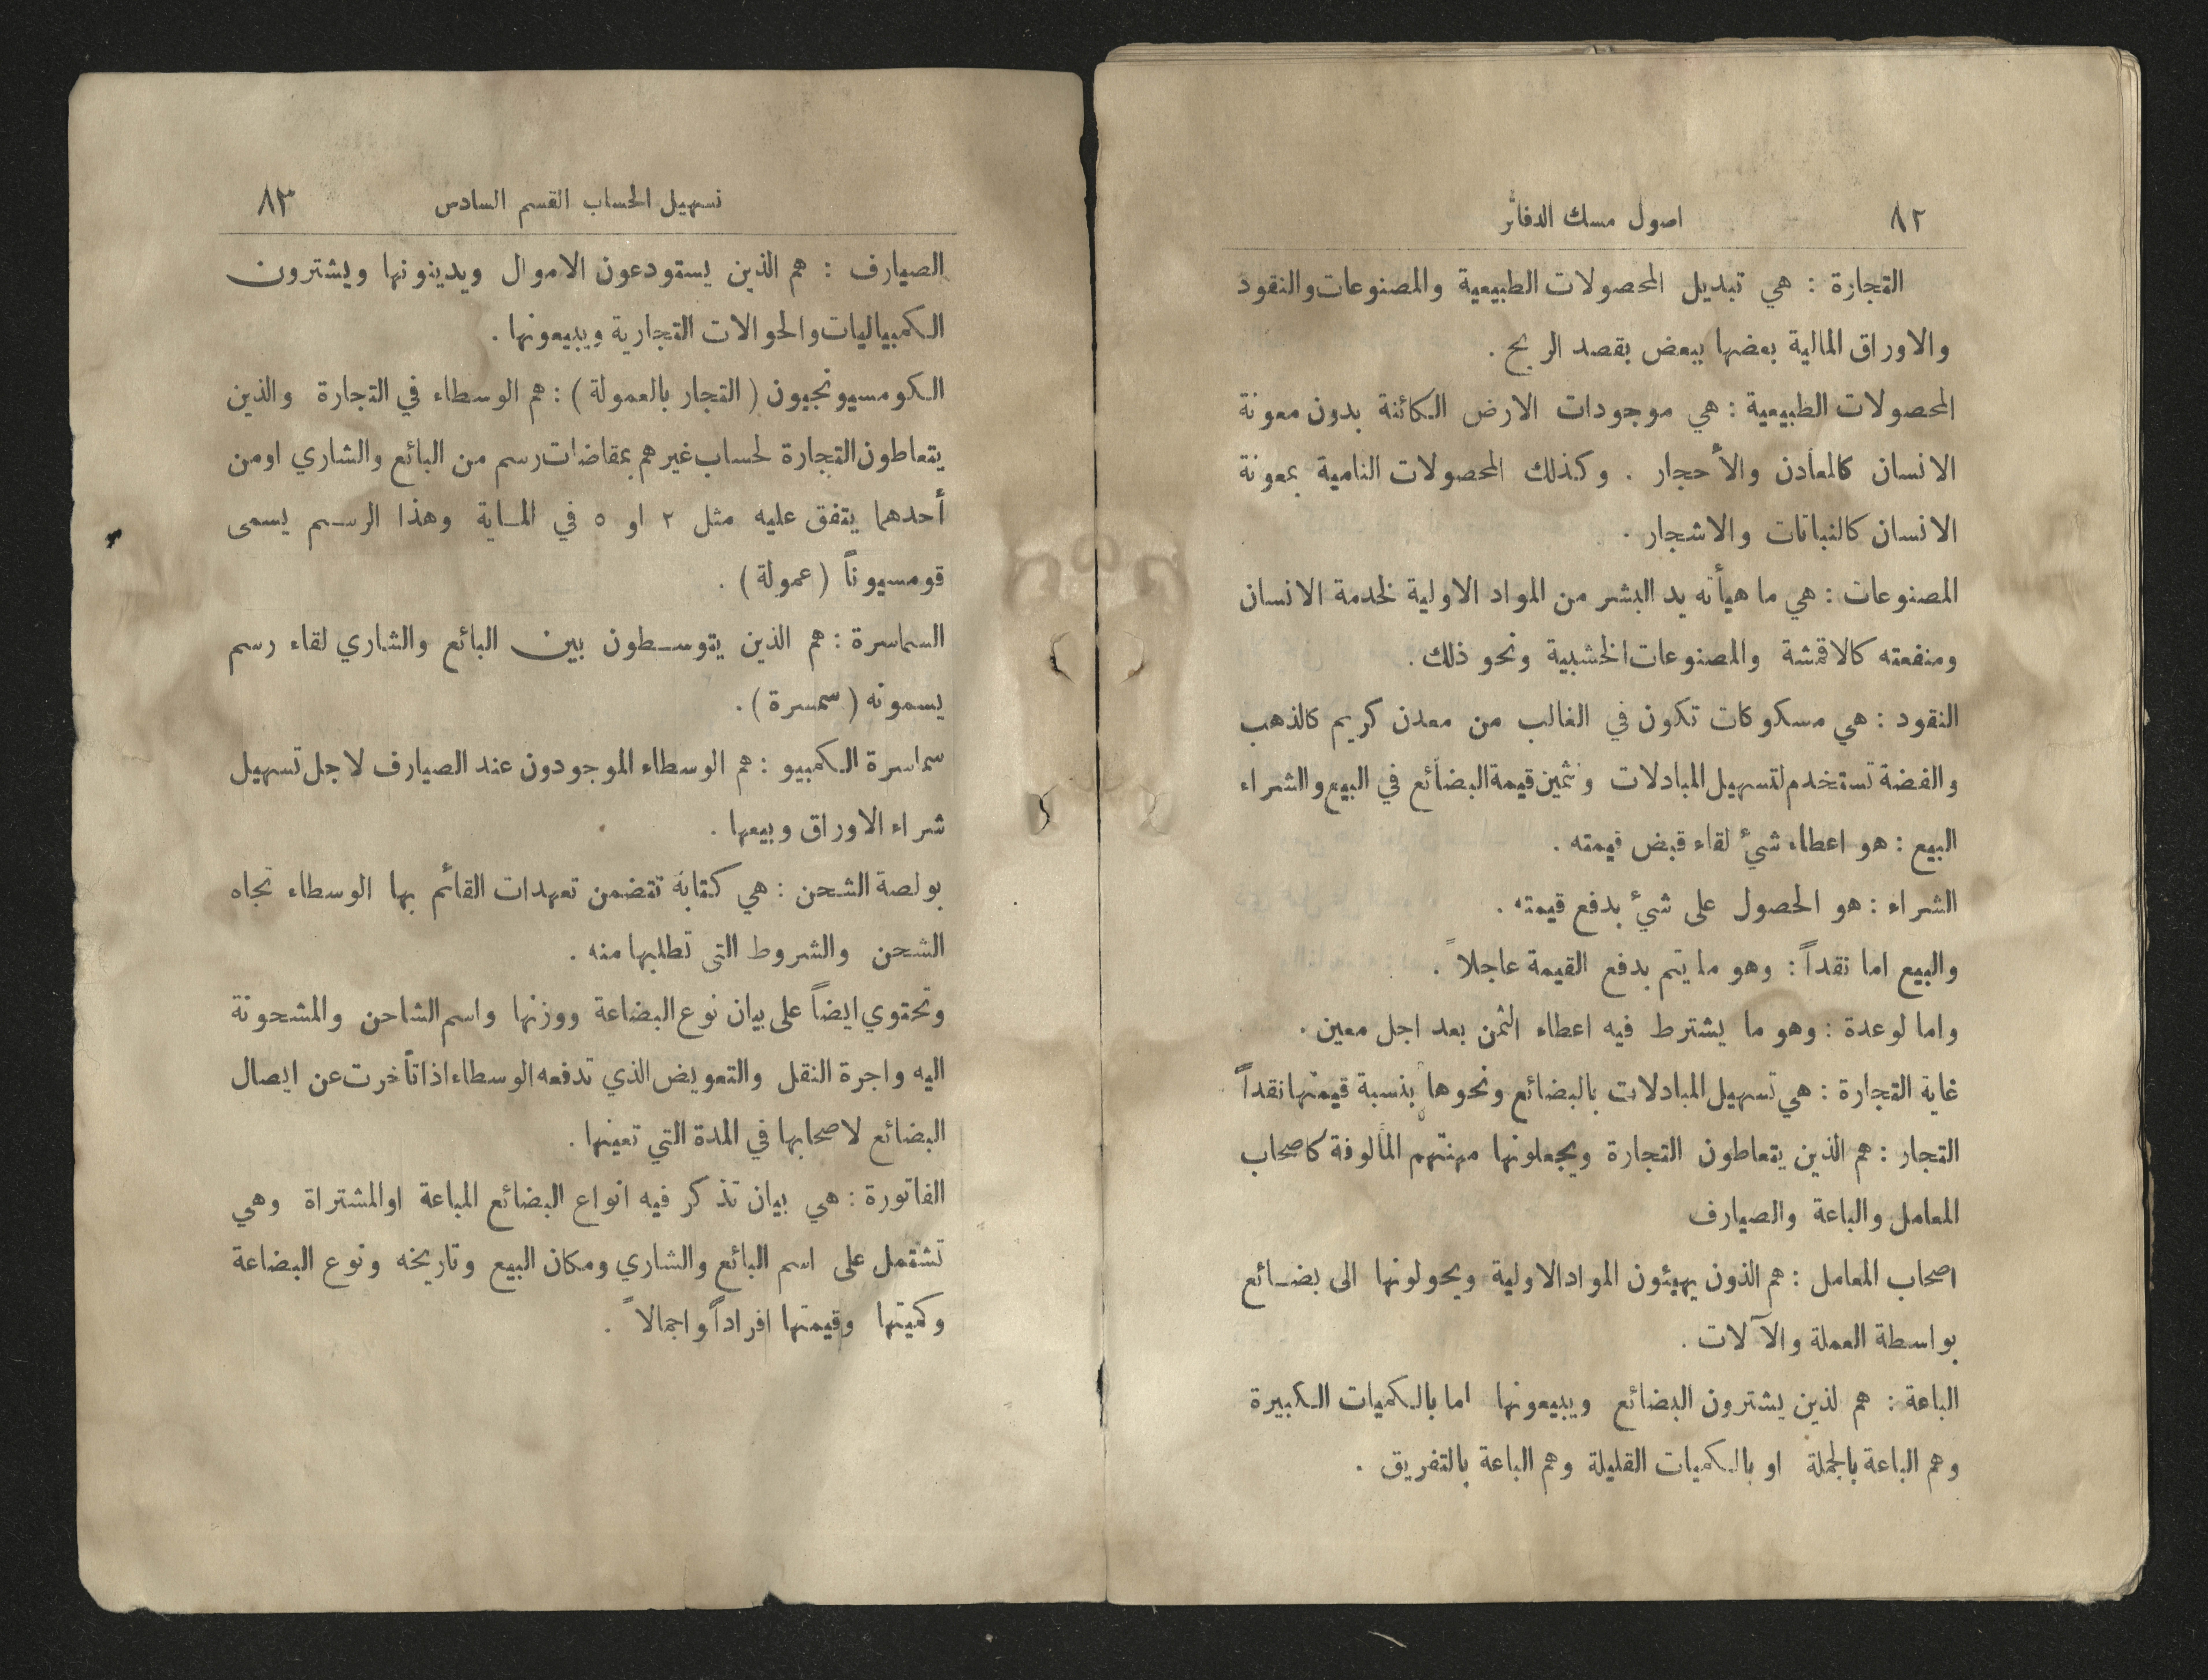 ٨٢ اصول مسك الدفاتر
التجارة : هي تبديل المحصولات الطبيعية والمصنوعات والنقود
والاوراق المالية بعضها ببعض بقصد الربح .
المحصولات الطبيعية : هي موجودات الارض الكائنة بدون معونة
الانسان كالمعادن والأحجار . وكذلك المحصولات النامية بمعونة
الانسان كالنباتات والاشجار .
المصنوعات : هي ما هيأته يد البشر من المواد الاولية لخدمة الانسان
ومنفعته كالاقمشة والمصنوعات الخشبية ونحو ذلك .
النقود : هي مسكوكات تكون في الغالب من معدن كريم كالذهب
والفضة تستخدم لتسهيل المبادلات وتثمين قيمة البضائع في البيع والشراء
البيع : هو اعطاء شيء لقاء قبض قيمته .
الشراء : هو الحصول على شيء بدفع قيمته .
والبيع اما نقداً : وهو ما يتم بدفع القيمة عاجلاً .
واما لوعدة : وهو ما يشترط فيه اعطاء الثمن بعد اجل معين .
غاية التجارة : هي تسهيل المبادلات بالبضائع ونحوها بنسبة قيمتها نقداً
التجار : هم الذين يتعاطون التجارة ويجعلونها مهنتهم المألوفة كاصحاب
المعامل والباعة والصيارف
اصحاب المعامل : هم الذون يهيئون المواد الاولية ويحولونها الى بضائع
بواسطة العملة والآلات .
الباعة : هم لذين يشترون البضائع ويبيعونها اما بالكميات الكبيرة
وهم الباعة بالجملة او بالكميات القليلة وهم الباعة بالتفريق .
تسهيل الحساب القسم السادس ٨٣
الصيارف : هم الذين يستودعون الاموال ويدينونها ويشترون
الكمبياليات والحوالات التجارية ويبيعونها .
الكومسيونجيون ( التجار بالعمولة ) : هم الوسطاء في التجارة والذين
يتعاطون التجارة لحساب غيرهم بمقاضات رسم من البائع والشاري اومن
أحدهما يتفق عليه مثل ٢ او ٥ في الماية وهذا الرسم يسمى
قومسيوناً ( عمولة ) .
السماسرة : هم الذين يتوسطون بين البائع والشاري لقاء رسم
يسمونه ( سمسرة ) .
سماسرة الكمبيو : هم الوسطاء الموجودون عند الصيارف لاجل تسهيل
شراء الاوراق وبيعها .
بولصة الشحن : هي كتابة تتضمن تعهدات القائم بها الوسطاء تجاه
الشحن والشروط التى تطلبها منه .
وتحتوي ايضاً على بيان نوع البضاعة ووزنها واسم الشاحن والمشحونة
اليه واجرة النقل والتعويض الذي تدفعه الوسطاء اذا تأخرت عن ايصال
البضائع لاصحابها في المدة التي تعينها .
الفاتورة : هي بيان تذكر فيه انواع البضائع المباعة اوالمشتراة وهي
تشتمل على اسم البائع والشاري ومكان البيع وتاريخه ونوع البضاعة
وكميتها وقيمتها افراداً واجمالاً .